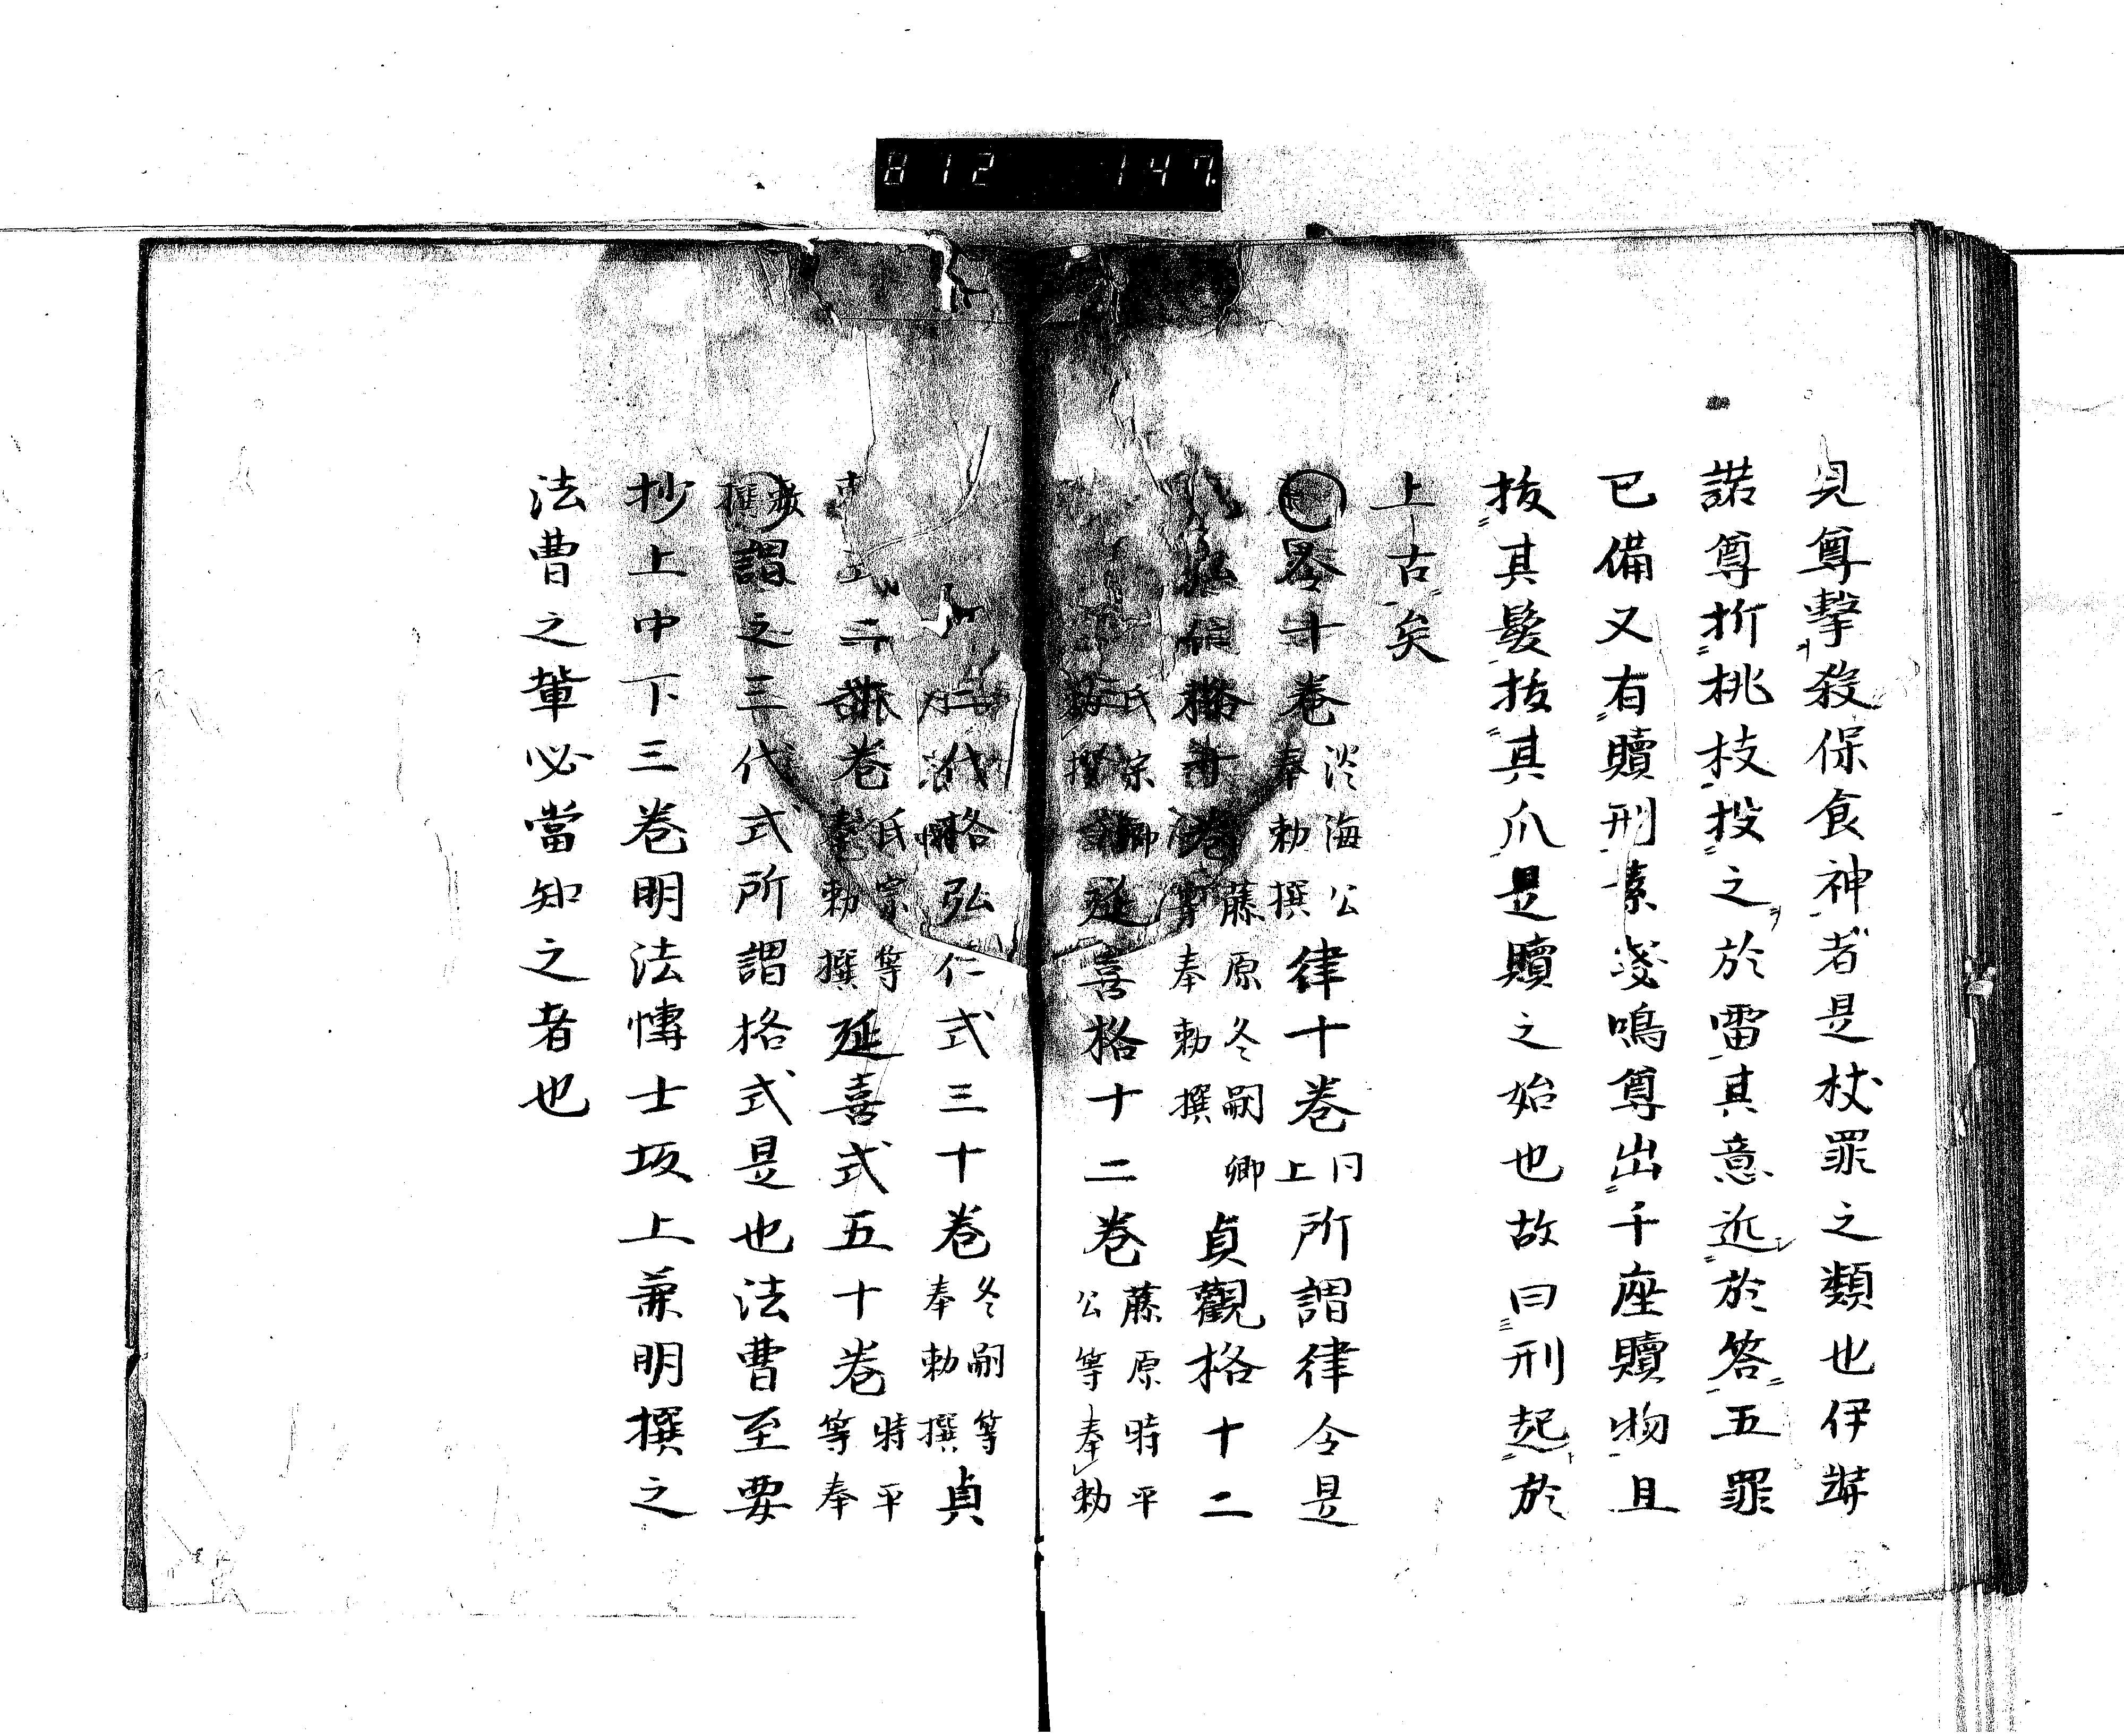 812 147
見尊擊殺保食神者是杖罪之類也伊弉
諾尊折桃枝投之於雷其意近於笞五罪
已備又有贖刑素戔嗚尊出千座贖物且
抜其髮抜其爪是贖之始也故曰刑起於
上古矣
令十卷淡海公奉勅撰律十卷同上所謂律令是
弘仁格十卷藤原冬嗣卿等奉勅撰貞觀格十二
氏宗卿延喜格十二卷藤原時平公等奉勅
三代格弘仁式三十卷冬嗣等奉勅撰貞
式二十卷氏宗等奉勅撰延喜式五十卷時平等奉
撰謂之三代式所謂格式是也法曹至要
抄上中下三卷明法博士坂上兼明撰之
法曹之輩必當知之者也